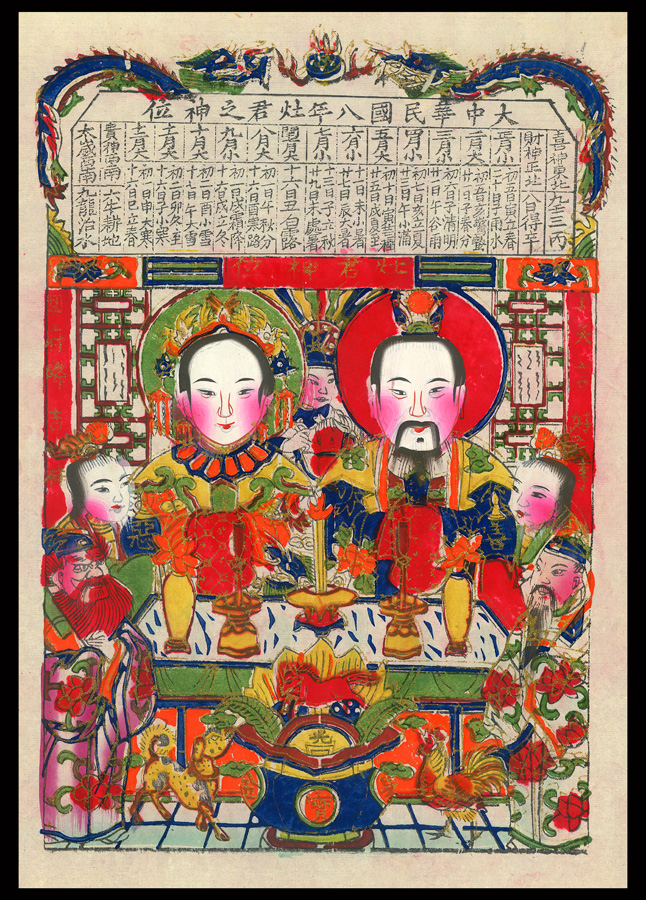 大中華民國八年灶君之神位
喜神東北
財神正北 八人得辛
正月小 初五日寅立春 二十日子雨水
二月大 初五日亥驚蟄 廿一日子春分
三月小 初六日寅清明 廿一日午谷雨
四月小 初七日亥立夏 廿三日午小滿
五月大 初十日寅芒種 廿五日戌夏至
六月小 十一日未小暑 廿七日辰大暑
七月小 十三日子立秋 廿九日未處暑
閏月大 十六日丑白露
八月大 初一日午秋分 十六日酉寒露
九月小 初一日戌霜降 十六日戌立冬
十月小 初二日酉小雪 十七日午大雪
十一月大 初二日卯冬至 十七日子小寒
十二月大 初一日申大寒 十六日巳立春
貴神西南 六牛耕地
太歲西南 九龍治水
灶君神位